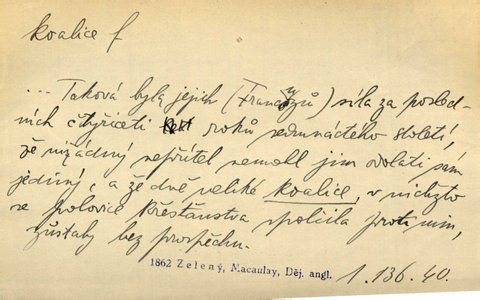 koalice f
... Taková byla jejich (Francouzů) síla za posled-
ních čtyřiceti let roků sedmnáctého století,
že nižádný nepřítel nemohl jim odolati sám
jediný, a že dvě veliké koalice, v nichžto
se polovice křesťanstva spolčila proti nim,
zůstaly bez prospěchu.
1862 Zelený, Macaulay, Děj. angl.
1. 136. 40.